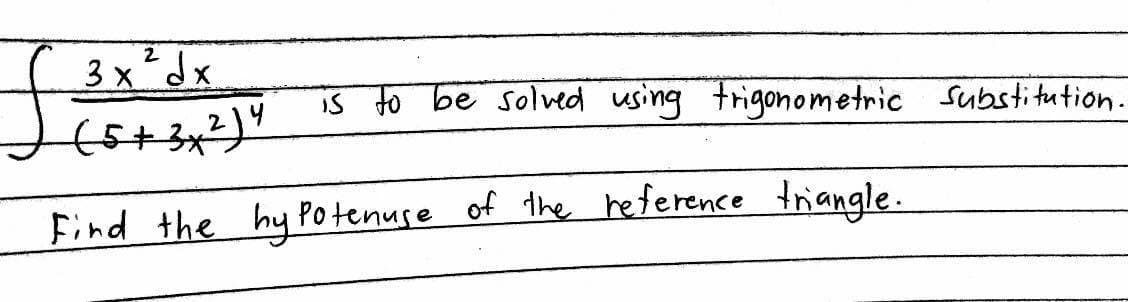 ∫ 3x² dx / (5 + 3x²)⁴ is to be solved using trigonometric substitution.
Find the hypotenuse of the reference triangle.